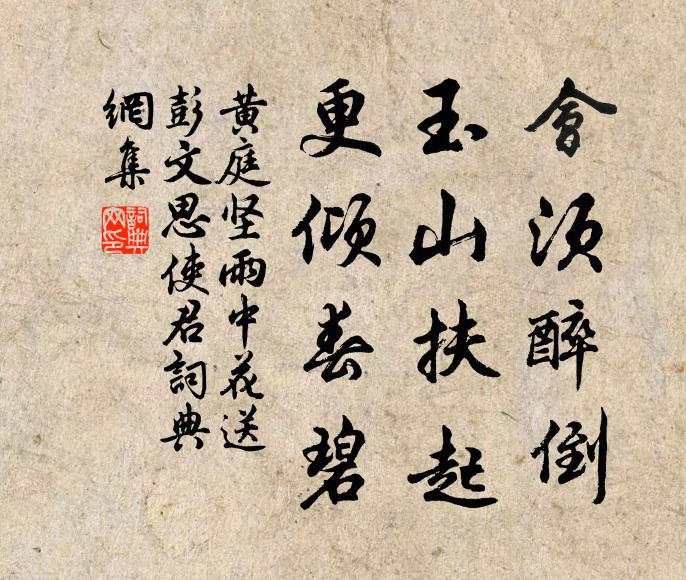 會須醉倒
玉山扶起
更傾春碧
黄庭坚雨中花送
彭文思使君詞典
網集
詞典
网印